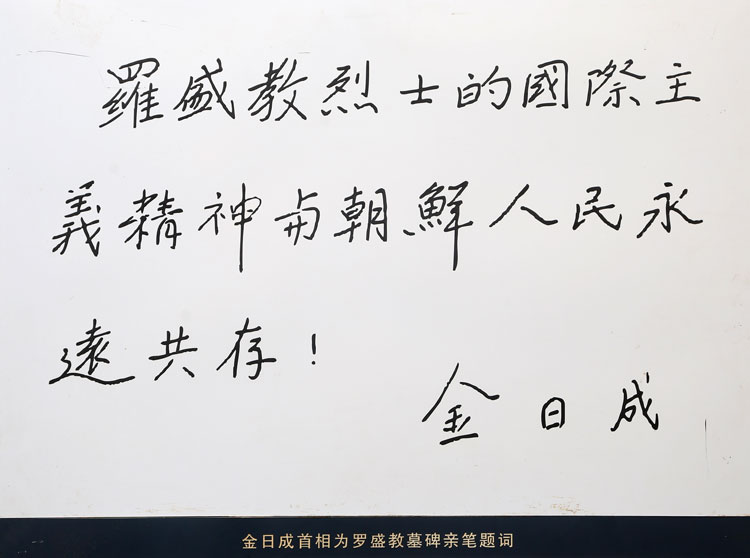 羅盛教烈士的國際主
義精神与朝鮮人民永
遠共存！
金日成
金日成首相为罗盛教墓碑亲笔题词